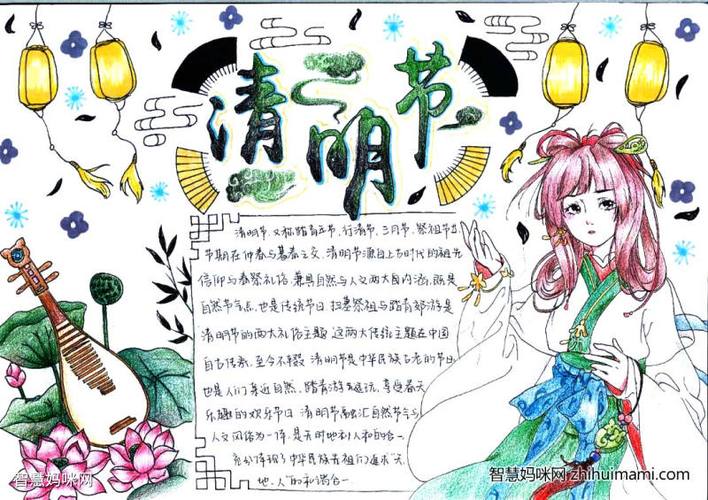 清明节
清明节,又称踏青节、行清节、三月节、祭祖节等
节期在仲春与暮春之交.清明节源自上古时代的祖先
信仰与春祭礼俗,兼具自然与人文两大内涵,既是
自然节气点,也是传统节日.扫墓祭祖与踏青郊游是
清明节的两大礼俗主题,这两大传统主题在中国
自古传承,至今不辍.清明节是中华民族古老的节日
也是人们亲近自然、踏青游玩、享受春天
乐趣的欢乐节日.清明节融汇自然节气与
人文风俗为一体,是天时地利人和的合一
充分体现了中华民族先祖们追求"天、
地、人"的和谐合一
智慧妈咪网
智慧妈咪网 zhihuimami.com
智慧妈咪网 zhihuimami.com